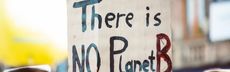 There is
NO PlanetB